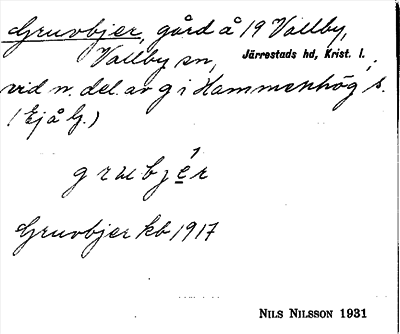 Gruvbjer, gård å 19 Vallby,
Vallby sn, Järrestads hd, Krist. l.,
vid n. del. av g i Hammenhög s.
(Ej å G.)
grubjér
Gruvbjer kb 1917
NILS NILSSON 1931